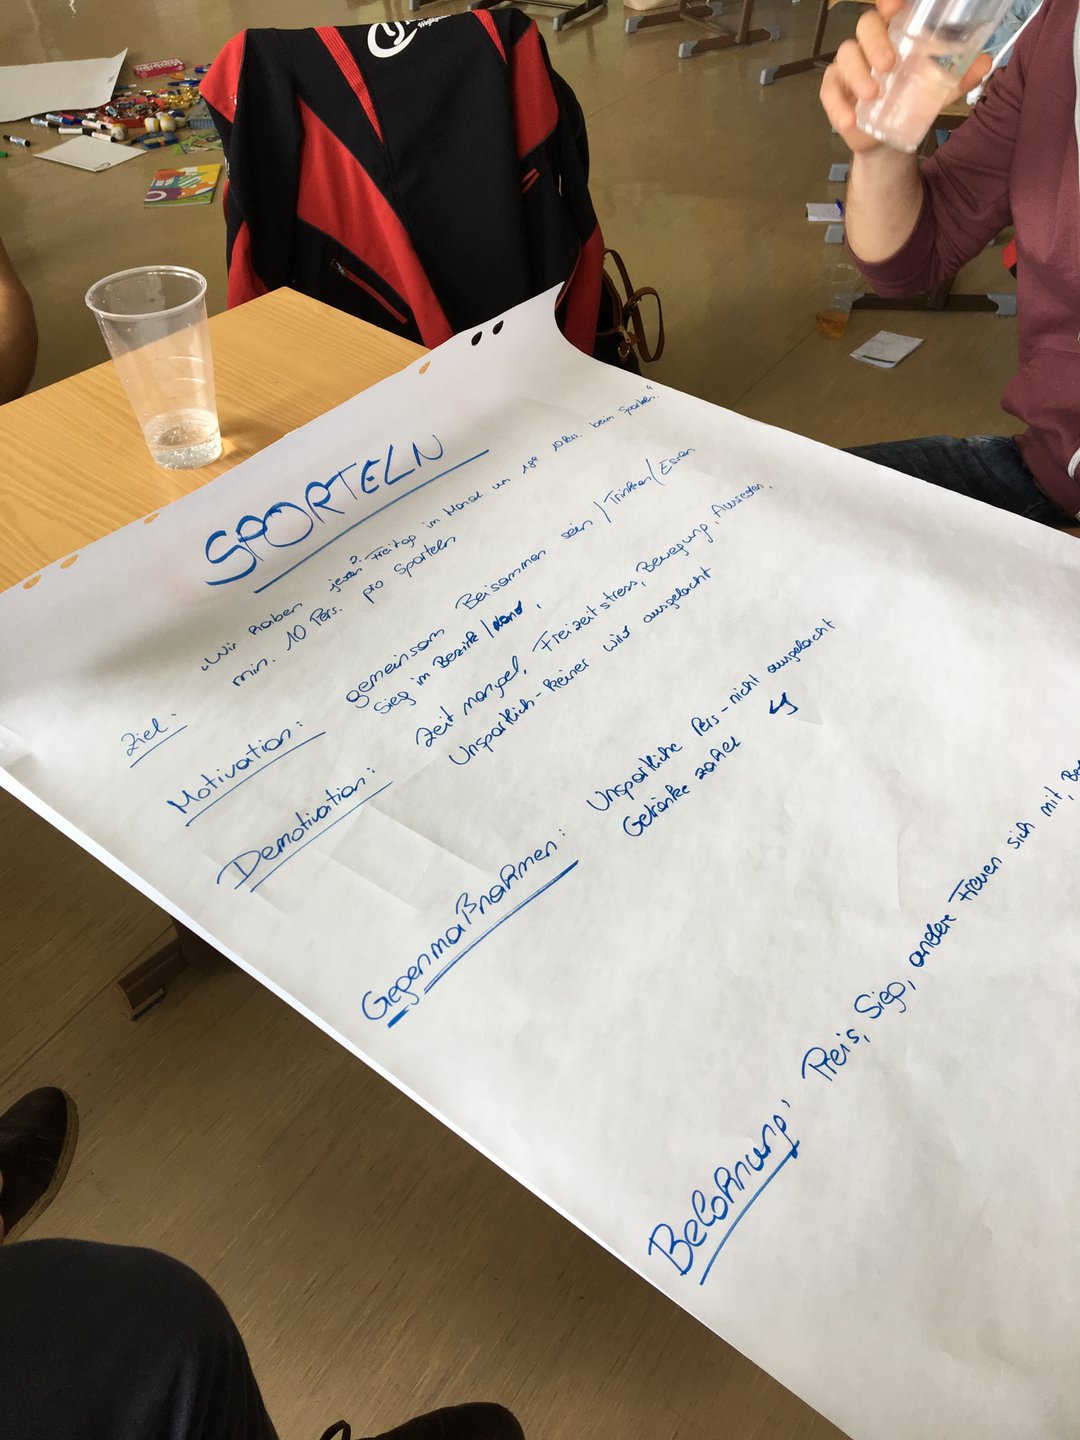 SPORTELN
Ziel: "Wir haben jeden 2. Freitag im Monat um 18º 10 Pers. beim Sporteln."
min. 10 Pers. pro Sporteln
Motivation: gemeinsam Beisammen sein / Trinken / Essen
Sieg im Bezirk / Land,
Demotivation: Zeitmangel, Freizeitstress, Bewegung, Ausreden,
Unsportlich - keiner wird ausgelacht
Gegenmaßnahmen: Unsportliche Pers - nicht ausgelacht
Getränke zahlt
Belohnung: Preis, Sieg, andere Freuen sich mit,